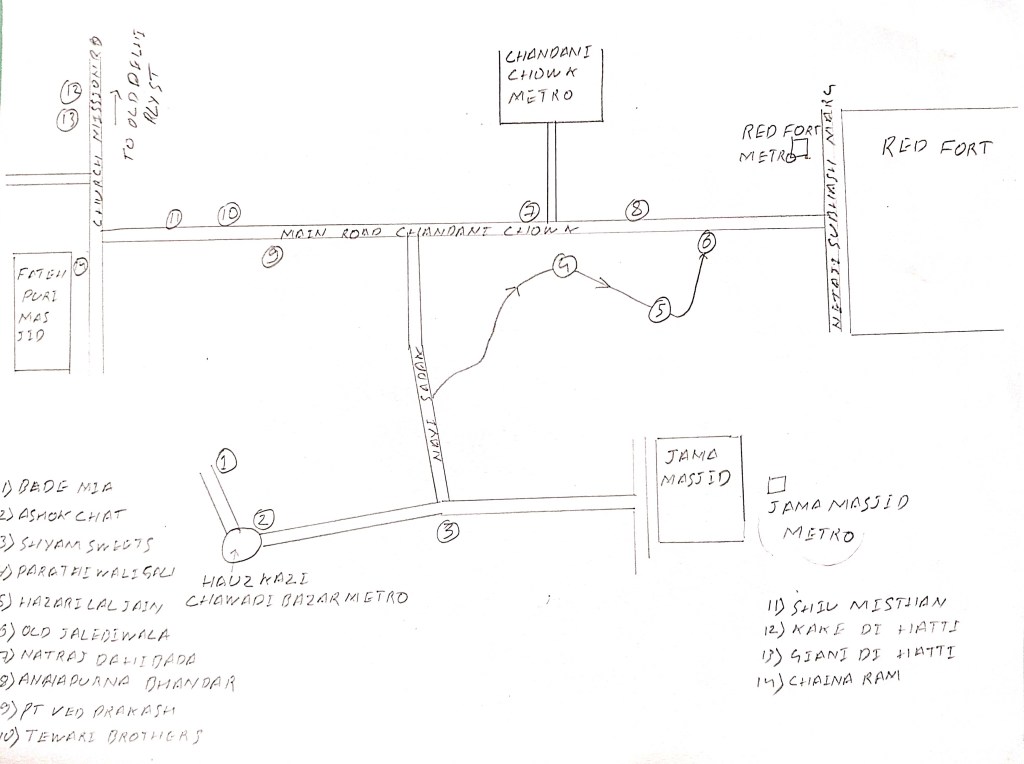 CHANDANI
CHOWK
METRO
CHURCH MISSION RD
TO OLD DELHI
RLYST
12
13
RED FORT
METRO
NETAJI SUBHASH MARG
RED FORT
11
10
7
8
MAIN ROAD CHANDANI CHOWK
9
6
4
5
14
FATEH
PURI
MAS
JID
NAYI SADAK
1
2
3
JAMA
MASJID
JAMA MASJID
METRO
HAUZ KAZI
CHAWADI BAZAR METRO
1) BADE MIA
2) ASHOK CHAT
3) SHYAM SWEETS
4) PARATHIWALIGALI
5) HAZARILAL JAIN
6) OLD JALEBIWALA
7) NATRAJ DAHIBADA
8) ANNAPURNA BHANDAR
9) PT VED PRAKASH
10) TEWARI BROTHERS
11) SHIV MISTHAN
12) KAKE DI HATTI
13) GIANI DI HATTI
14) CHAINA RAM